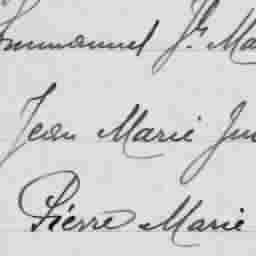 Emmanuel Jh Ma
Jean Marie Ju
Pierre Marie